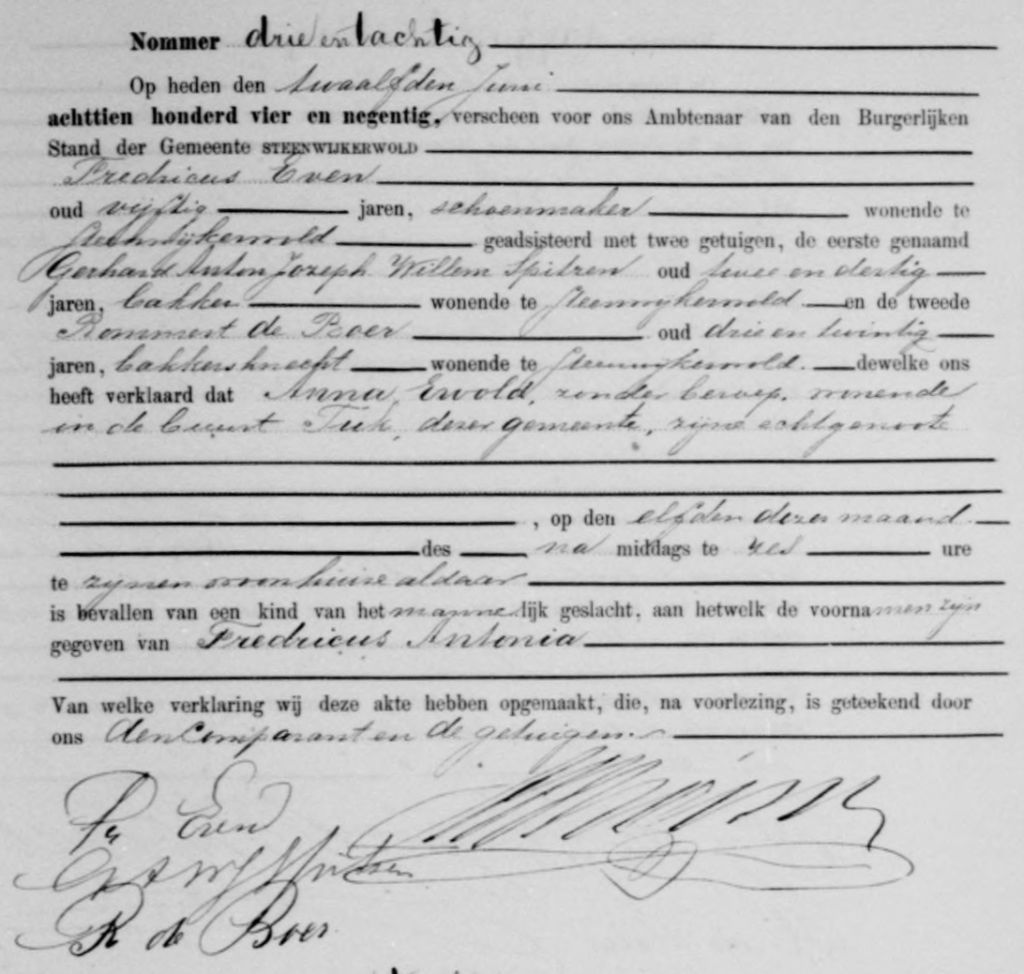 Nommer drie en tachtig
Op heden den twaalfden Juni
achttien honderd vier en negentig, verscheen voor ons Ambtenaar van den Burgerlijken
Stand der Gemeente STEENWIJKERWOLD
Fredricus Even
oud vijftig jaren, schoenmaker wonende te
Steenwijkerwold geadsisteerd met twee getuigen, de eerste genaamd
Gerhard Anton Jozeph Willem Spitzen oud twee en dertig
jaren, bakker wonende te Steenwijkerwold en de tweede
Rommert de Boer oud drie en twintig
jaren, bakkersknecht wonende te Steenwijkerwold. dewelke ons
heeft verklaard dat Anna Ewold, zonder beroep, wonende
in de buurt Tuk, dezer gemeente, zijne echtgenoote
, op den elfden dezer maand
des na middags te zes ure
te zijnen woonhuize aldaar
is bevallen van een kind van het mannelijk geslacht, aan hetwelk de voornamen zijn
gegeven van Fredricus Antonia
Van welke verklaring wij deze akte hebben opgemaakt, die, na voorlezing, is geteekend door
ons den Comparant en de getuigen.
Fr Even
G A W J Spitzen
R de Boer